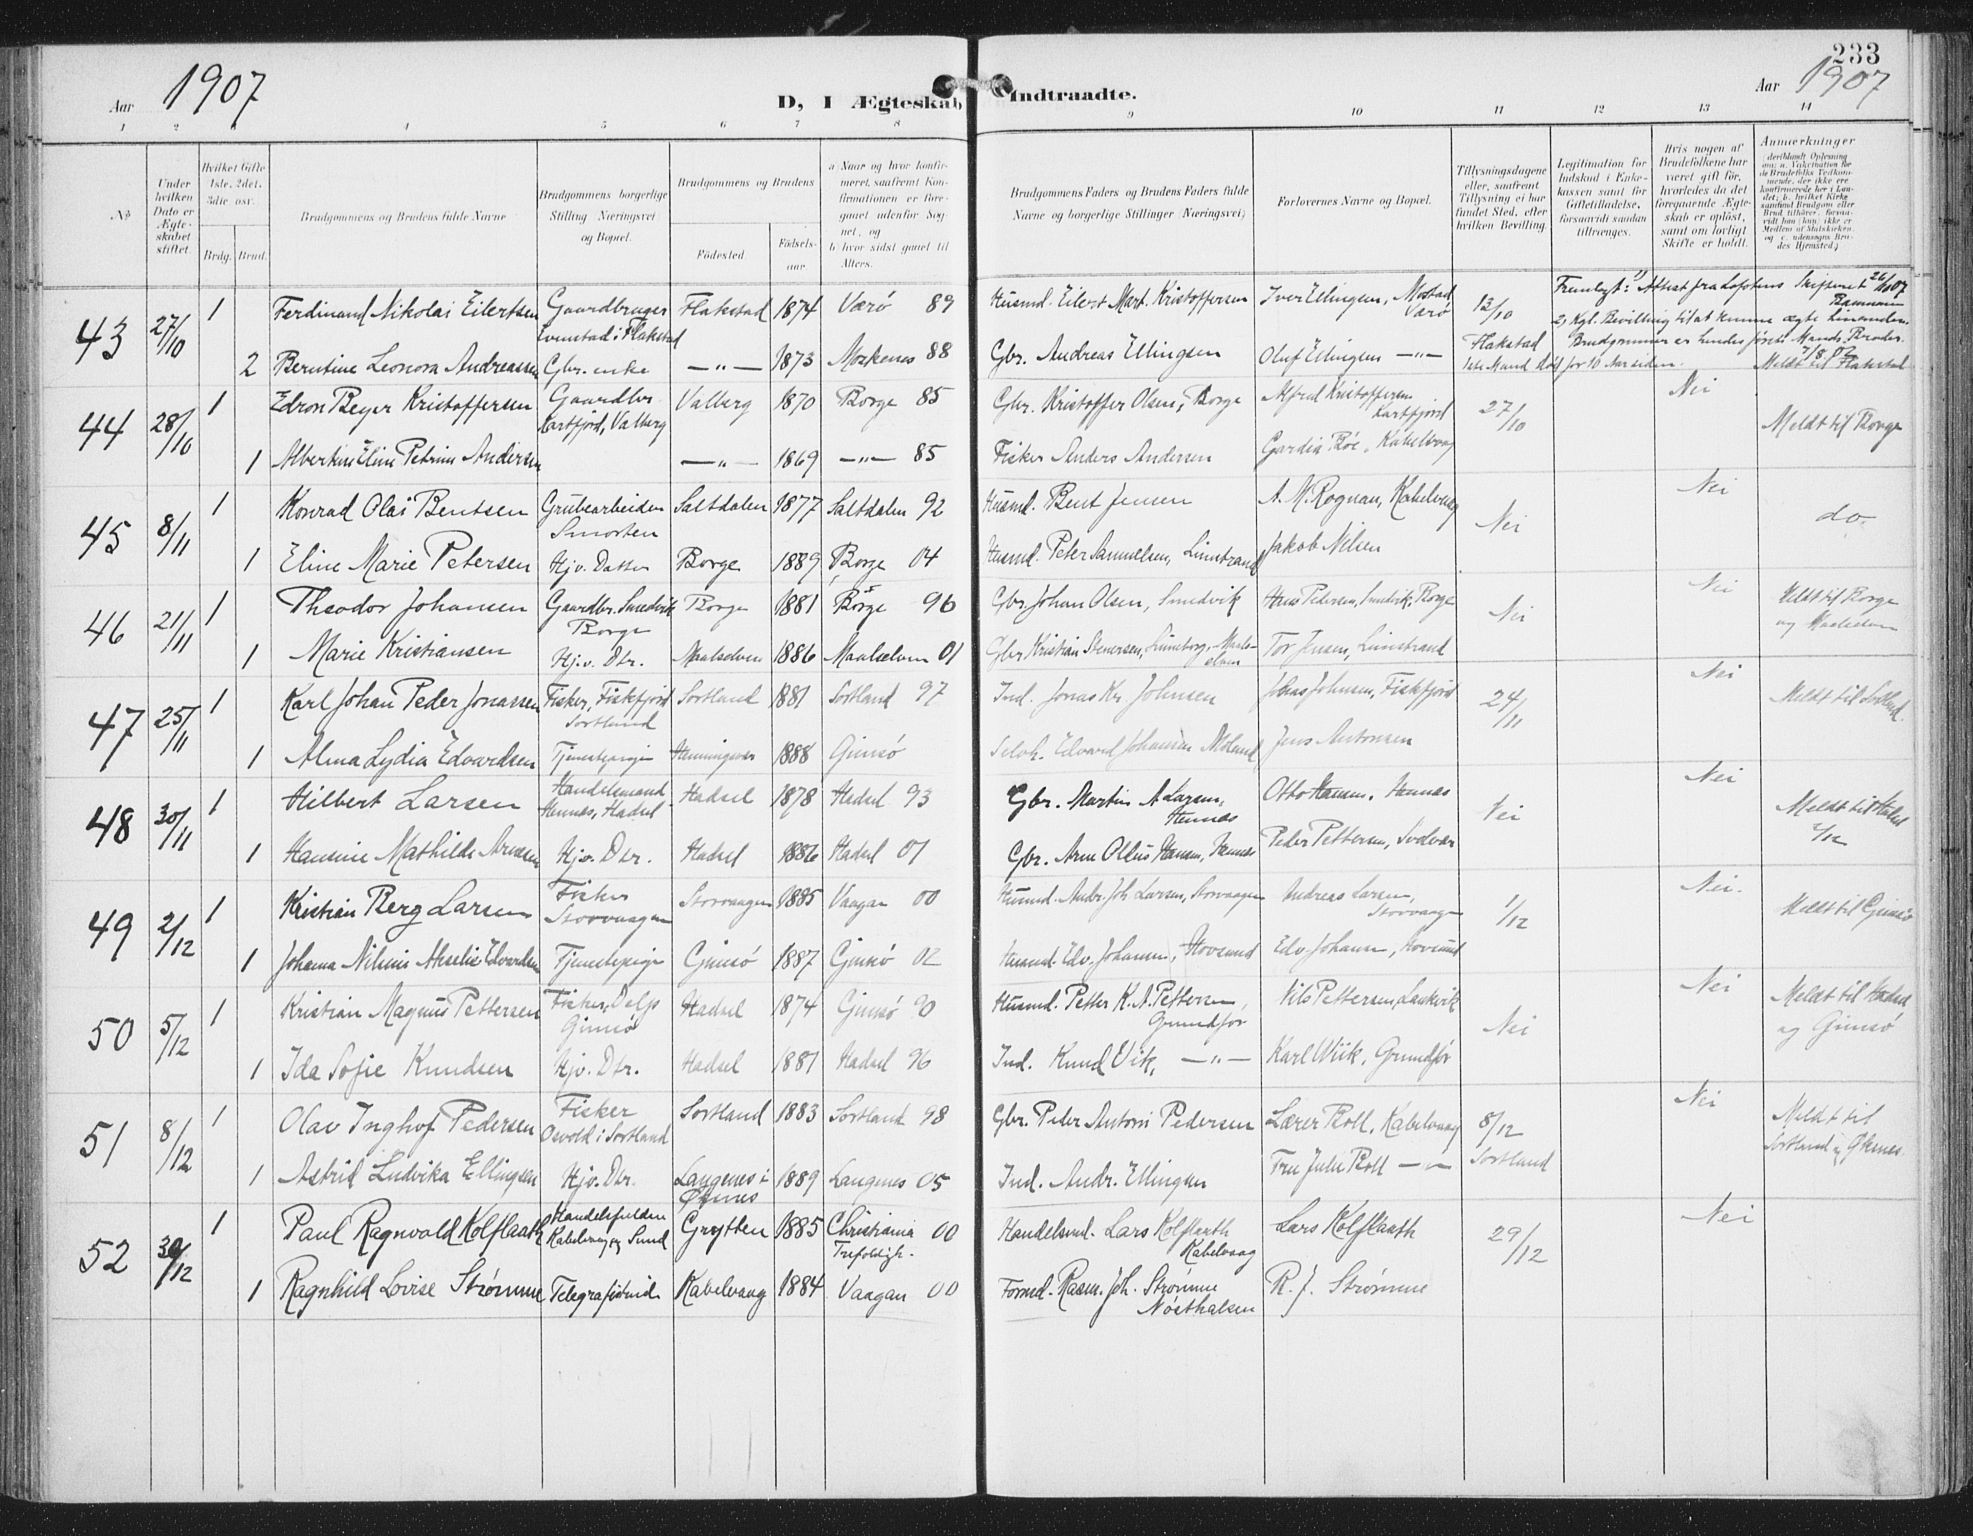 233
Aar 1907
D, I Ægteskab Indtraadte.
Aar 1907
1 2 3 4 5 6 7 8 9 10 11 12 13 14
No
Under hvilken Dato er Ægteskabet stiftet.
Hvilket Gifte 1ste, 2det, 3die osv.
Brdg. Brud.
Brudgommens og Brudens fulde Navne
Brudgommens borgerlige Stilling Næringsvei og Bopæl.
Brudgommens og Brudens
Födested
Födselsaar
a Naar og hvor konfirmeret, saafremt Konfirmationen er foregaaet udenfor Sognet, og
b. hvor sidst gaaet til Alters.
Brudgommens Faders og Brudens Faders fulde Navne og borgerlige Stillinger (Næringsvei)
Forlovernes Navne og Bopæl.
Tillysningsdagene eller, saafremt Tillysning ei har fundet Sted, efter hvilken Bevilling.
Legitimation for Indskud i Enkekassen samt for Giftetilladelse, forsaavidt saadan tiltrænges.
Hvis nogen af Brudefolkene har været gift før, hvorledes da det foregaaende Ægteskab er oplöst, samt om lovligt Skifte er holdt.
Anmærkninger
43 27/10 1 Ferdinand Nikolai Eilertsen Gaardbruger Flakstad 1874 Værö 89 Husmd. Eilert Mart. Kristoffersen Iver Ellingsen, Mostad Værö 13/10 Fremlagt: 1) Attest fra Lofotens Skifteret 26/9 1907
2) Kgl. Bevilling til at kunne ægte
Brudgommen er hendes förste Mands Broder.
2 Berntine Leonora Andreassen Gbr. enke —"— 1873 Moskenes 88 Gbr. Andreas Ellingsen Oluf Ellingsen —"— Flakstad
1ste Mand död for 10 Aar siden. Meldt til Flakstad
44 28/10 1 Edron Beyer Kristoffersen Gaardbr. Valberg 1870 Borge 85 Gbr. Kristoffer Olsen, Borge Alfred Kristoffersen Kartfjord 27/10 Nei Meldt til Borge
Kartfjord, Valberg
1 Albertine Eline Petrine Andersen —"— 1869 —"— 85 Fisker Anders Andersen Gardia Böe, Kabelvaag
45 8/11 1 Konrad Olai Bentsen Grubearbeider Smorten Saltdalen 1877 Saltdalen 92 Husmd. Bent Jensen A. M. Rognan, Kabelvaag Nei Nei do.
1 Eline Marie Petersen Hjv. Datter Borge 1889 Borge 04 Husmd. Peter Samuelsen, Limstrand Jakob Nilsen
46 21/11 1 Theodor Johansen Gaardbr. Smedvik Borge Borge 1881 Borge 96 Gbr. Johan Olsen, Smedvik Hans Pedersen, Smedvik, Borge Nei Nei Meldt til Borge og Maalselven
1 Marie Kristiansen Hj.v. Dtr. Maalselven 1886 Maalselven 01 Gbr. Kristian Stenersen, Maalselven Tor Jensen, Limstrand
47 25/11 1 Karl Johan Peder Jonassen Fisker, Fiskfjord Sortland Sortland 1881 Sortland 97 Ind. Jonas Kr. Johnsen Johns Johnsen, Fiskfjord 24/11 Nei Meldt til Sortland.
1 Alma Lydia Edvardsen Tjenestepige Henningsvær 1888 Gimsö Selvh. Edvard Johansen Molund Jens Antonsen
48 30/11 1 Hilbert Larsen Handelsmand Hennes, Hadsel Hadsel 1878 Hadsel 93 Gbr. Martin A Larsen, Hennes Otto Hansen, Hennes Nei Nei Meldt til Hadsel
1 Hansine Mathilde Arnesen Hjv. Dtr. Hadsel 1886 Hadsel 01 Gbr. Arne Ollius Hansen, Hennes Peder Pettersen, Svolvær
49 2/12 1 Kristian Berg Larsen Fisker Storvaagen Storvaagen 1885 Vaagan 00 Husmd. Andr. Joh. Larsen, Storvaagen Andreas Larsen, Storvaagen 1/12 Nei. Meldt til Gimsö
1 Johanna Nilsine Akselie Edvardsen Tjenestepige Gimsö 1887 Gimsö 02 Husmd. Edv. Johansen, Hovsund Edv. Johansen, Hovsund
50 5/12 1 Kristian Magnus Pettersen Fisker, Delp Gimsö Hadsel 1874 Gimsö 90 Husmd. Petter K. A. Pettersen, Grundför Nils Pettersen, Laukvik Nei Nei Meldt til Hadsel og Gimsö
1 Ida Sofie Knudsen Hjv. Dtr. Hadsel 1881 Hadsel 96 Ind. Knud Vik, —"— Karl Wiik, Grundför
51 8/12 1 Olav Inghof Pedersen Fisker Osvold i Sortland Sortland 1883 Sortland 98 Gbr. Peder Antoni Pedersen Lærer Boll, Kabelvaag 8/12 Sortland Nei Meldt til Sortland og Øksnes.
1 Astrid Ludvika Ellingsen Hjv. Dtr. Langenes i Øksnes 1889 Langenes 05 Ind. Andr. Ellingsen Fru Julie Boll —"—
52 30/12 1 Paul Ragnvald Kolflaath Handelsfuldm. Kabelvaag og Sund Grytten 1885 Christiania Trefoldigh. 00 Handelsmd. Lars Kolflaath Kabelvaag Lars Kolflaath 29/12 Nei
1 Ragnhild Lovise Strømme Telegrafistinde Kabelvaag 1884 Vaagan 00 Formd. Rasm. Joh. Strømme Nösthalsen R. J. Strømme